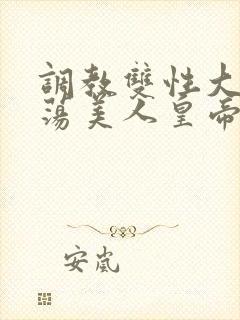 調教雙性大
蕩美人皇帝
安嵐